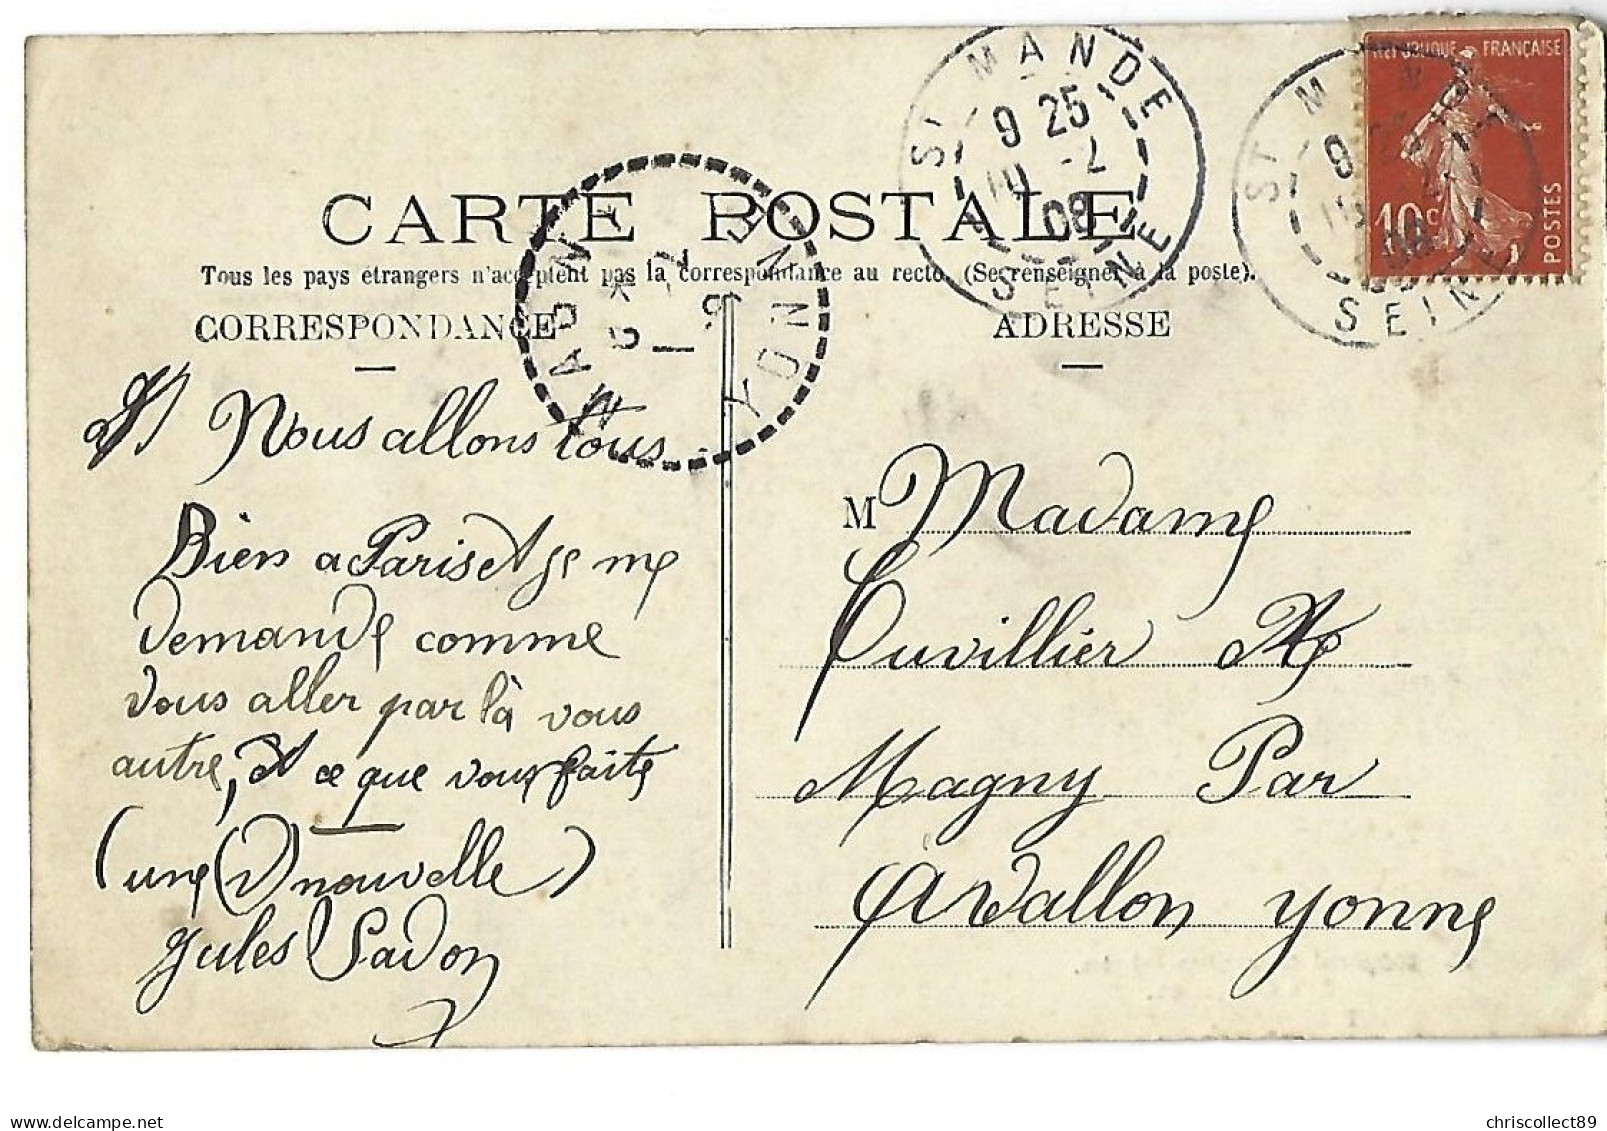 REPUBLIQUE FRANÇAISE
10c
POSTES
ST MANDE
9 25
10 -7
08
SEINE
ST M
9
SEINE
CARTE POSTALE
Tous les pays étrangers n'acceptent pas la correspondance au recto. (Se renseigner à la poste).
MAGNY
YONNE
CORRESPONDANCE
ADRESSE
Nous allons tous
Bien a Paris et je me
demande comme
vous aller par là vous
autre, et ce que vous faite
(une (d) nouvelle)
Jules Sadon
M Madame
Cuvillier
Magny Par
Avallon Yonne
delcampe.net
chriscollect89